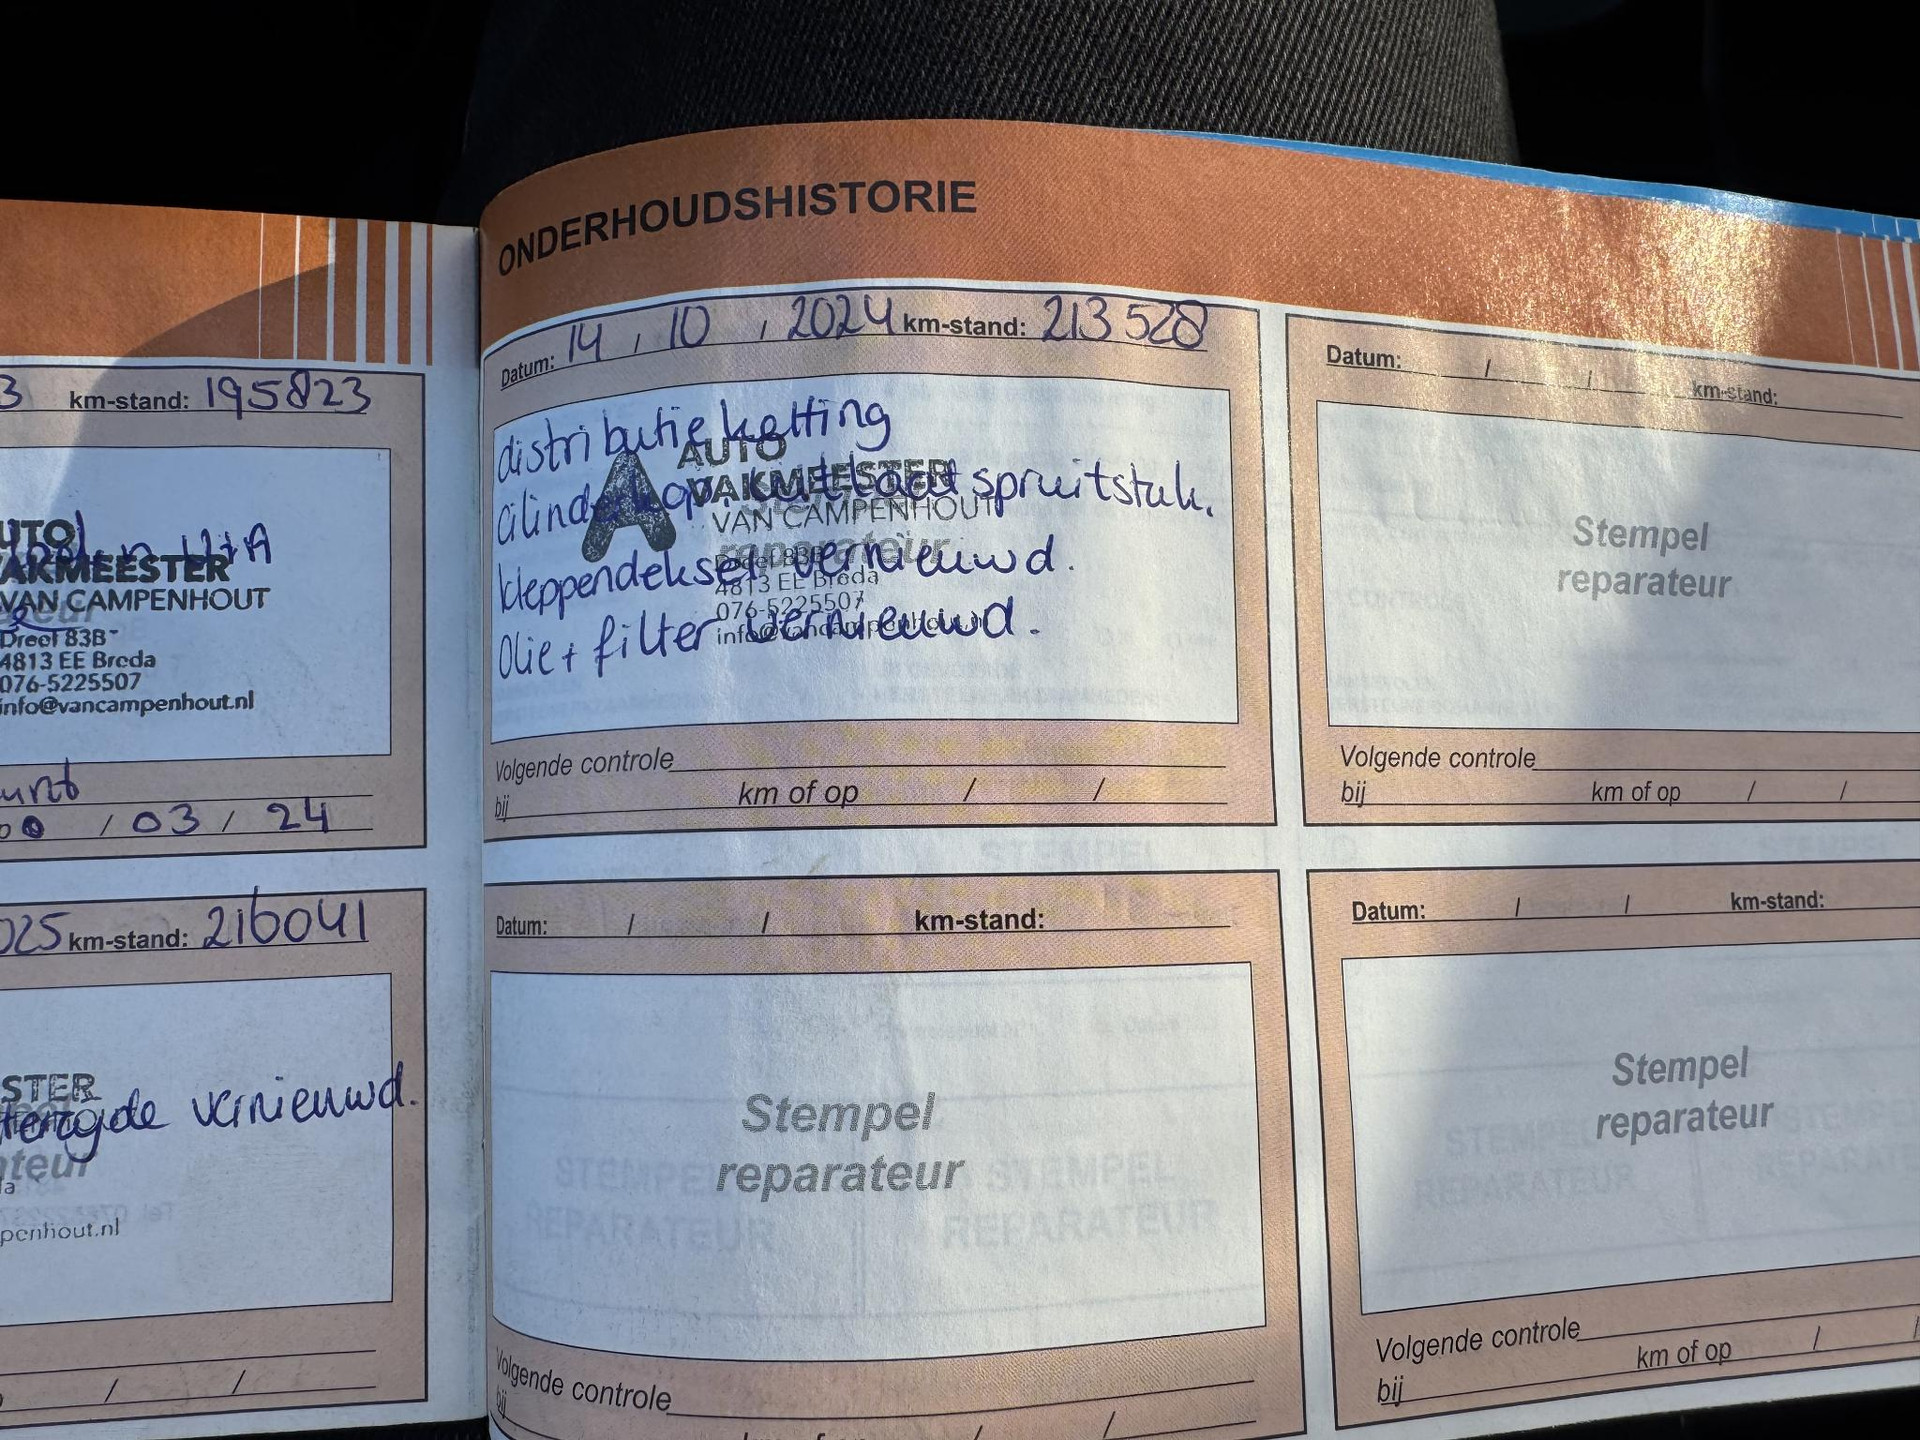 3 km-stand: 195823
UTO
AKMEESTER
VAN CAMPENHOUT
Dreef 83B
4813 EE Breda
076-5225507
info@vancampenhout.nl
/ 03 / 24
025 km-stand: 216041
STER
vernieuwd.
teur
penhout.nl
/ /
ONDERHOUDSHISTORIE
Datum: 14 / 10 / 2024 km-stand: 213528
distributie ketting
AUTO
VAKMEESTER
cilinderkop, uitlaat spruitstuk.
VAN CAMPENHOUT
reparateur
kleppendeksel vernieuwd.
Dreef 83B
4813 EE Breda
076-5225507
info@vancampenhout.nl
Olie + filter vernieuwd.
Volgende controle
bij km of op / /
Datum: / / km-stand:
Stempel
reparateur
Volgende controle
bij km of op / /
Datum: / / km-stand:
Stempel
reparateur
Volgende controle
bij km of op / /
Datum: / / km-stand:
Stempel
reparateur
Volgende controle
bij km of op / /